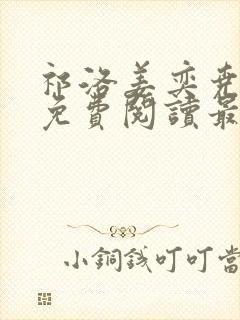 祁洛姜奕
免費閱讀最
小銅錢叮叮當